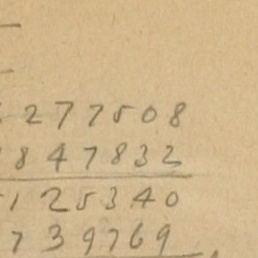 277508
847832
125340
739769